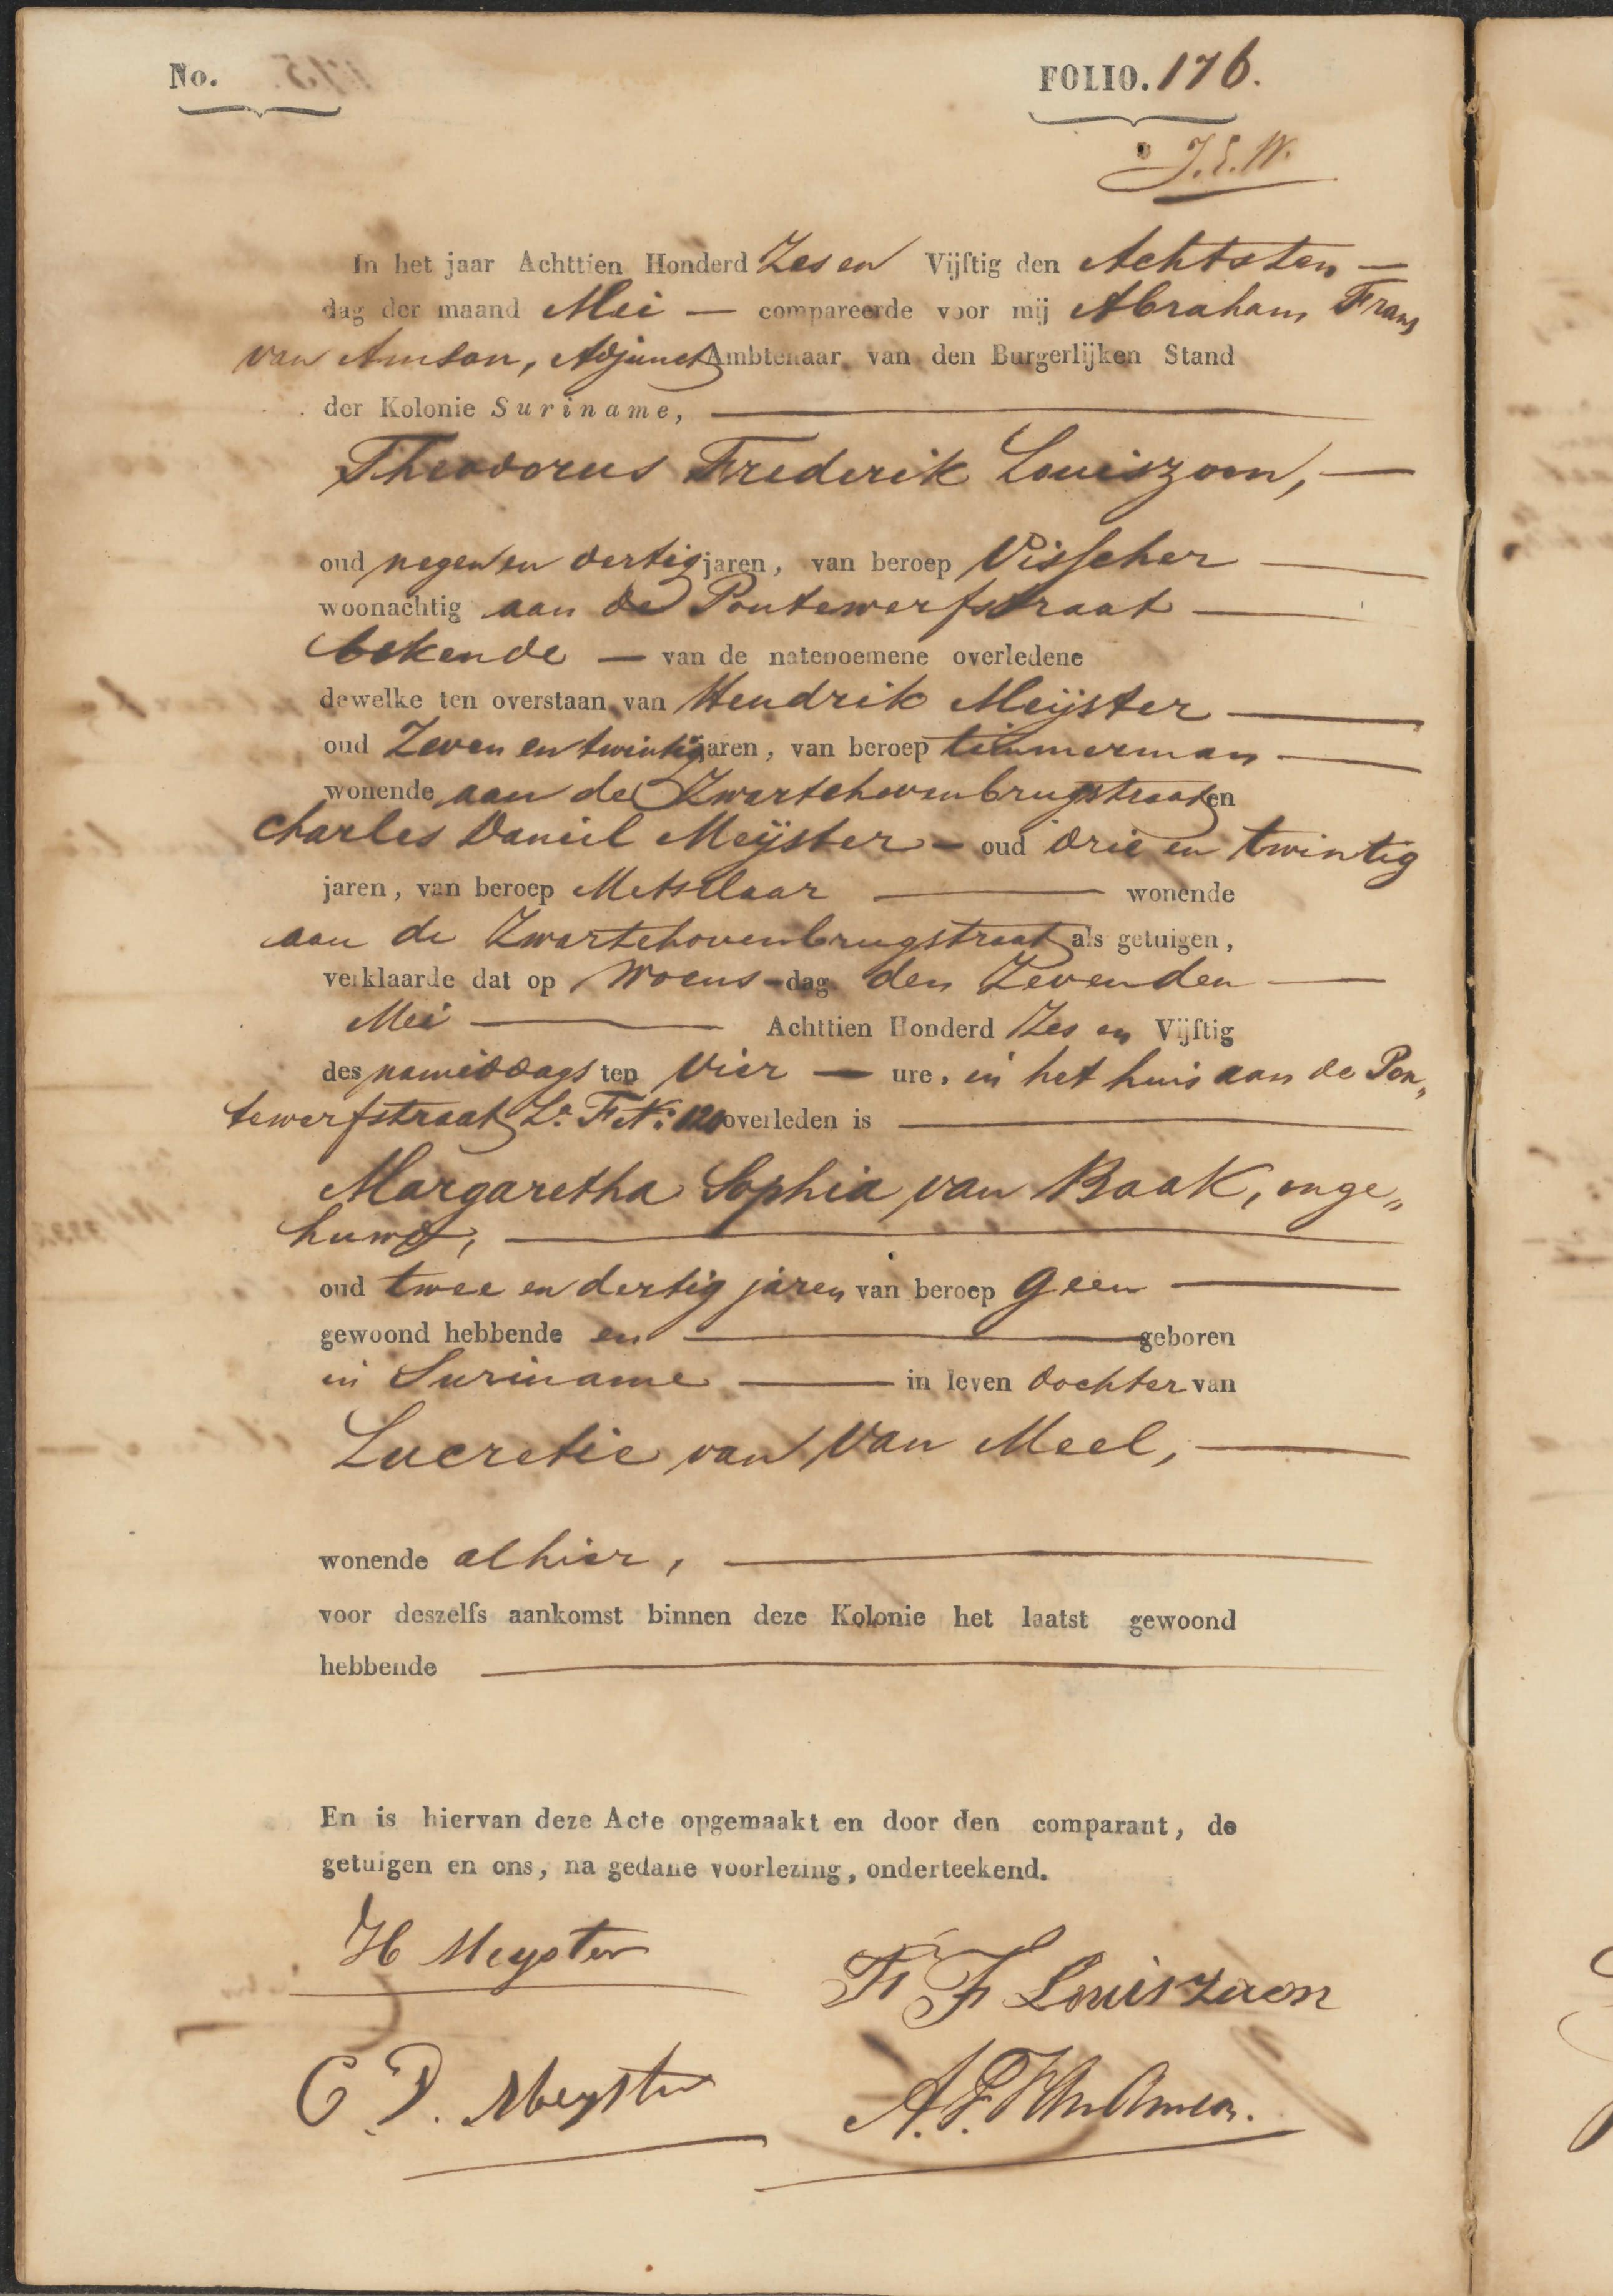 No.
FOLIO. 176.
J.E.W.
In het jaar Achttien Honderd Zes en Vijftig den Achtsten —
dag der maand Mei — compareerde voor mij Abraham Frans
van Amson, Adjunct Ambtenaar van den Burgerlijken Stand
der Kolonie Suriname, —
Theodorus Frederik Louiszoon, —
oud negen en dertig jaren, van beroep Visscher —
woonachtig aan de Pontewerfstraat —
bekende — van de natenoemene overledene
dewelke ten overstaan van Hendrik Meijster —
oud Zeven en twintig jaren, van beroep timmerman —
wonende aan de Zwartehovenbrugstraat en
Charles Daniel Meijster — oud drie en twintig
jaren, van beroep Metselaar — wonende
aan de Zwartehovenbrugstraat als getuigen,
verklaarde dat op Woens-dag den Zevenden —
Mei — Achttien Honderd Zes en Vijftig
des namiddags ten Vier — ure, in het huis aan de Pon„
tewerfstraat La. F No. 120 overleden is —
Margaretha Sophia van Baak, onge„
huwd, —
oud twee en dertig jaren van beroep geen —
gewoond hebbende en — geboren
in Suriname — in leven dochter van
Lucretie van Van Meel, —
wonende alhier, —
voor deszelfs aankomst binnen deze Kolonie het laatst gewoond
hebbende —
En is hiervan deze Acte opgemaakt en door den comparant, de
getuigen en ons, na gedane voorlezing, onderteekend.
H Meyster
F Louiszoon
C D. Meyster
A. F. Van Amson.